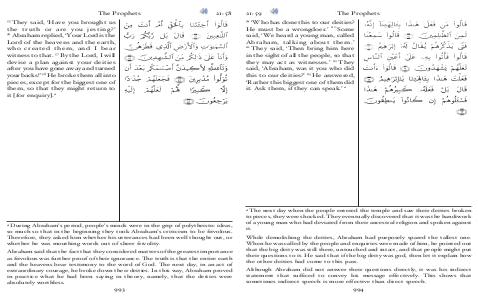 The Prophets 21: 58
⁵⁵ They said, 'Have you brought us
the truth or are you jesting?'
⁵⁶ Abraham replied, 'Your Lord is the
Lord of the heavens and the earth,
who created them, and I bear
witness to that. ⁵⁷ By the Lord, I will
devise a plan against your deities
after you have gone away and turned
your backs!' ⁵⁸ He broke them all into
pieces, except for the biggest one of
them, so that they might return to
it [for enquiry].ᵃ
قَالُوٓا۟ أَجِئْتَنَا بِٱلْحَقِّ أَمْ أَنتَ مِنَ
ٱللَّـٰعِبِينَ قَالَ بَل رَّبُّكُمْ رَبُّ
ٱلسَّمَـٰوَٰتِ وَٱلْأَرْضِ ٱلَّذِى فَطَرَهُنَّ
وَأَنَا۠ عَلَىٰ ذَٰلِكُم مِّنَ ٱلشَّـٰهِدِينَ
وَتَٱللَّهِ لَأَكِيدَنَّ أَصْنَـٰمَكُم بَعْدَ أَن
تُوَلُّوا۟ مُدْبِرِينَ فَجَعَلَهُمْ جُذَٰذًا
إِلَّا كَبِيرًا لَّهُمْ لَعَلَّهُمْ إِلَيْهِ
يَرْجِعُونَ
ᵃ During Abraham's period, people's minds were in the grip of polytheistic ideas,
so much so that in the beginning they took Abraham's criticism to be frivolous.
Therefore, they asked him whether his utterances had been well thought out, or
whether he was mouthing words out of sheer levity.
Abraham said that the fact that they considered matters of the greatest importance
as frivolous was further proof of their ignorance. The truth is that the entire earth
and the heavens bear testimony to the word of God. The next day, in an act of
extraordinary courage, he broke down their deities. In this way, Abraham proved
in practice what he had been saying in theory, namely, that the deities were
absolutely worthless.
993
21: 59 The Prophets
⁵⁹ 'Who has done this to our deities?
He must be a wrongdoer.' ⁶⁰ Some
said, 'We heard a young man, called
Abraham, talking about them.'
⁶¹ They said, 'Then bring him here
in the sight of all the people, so that
they may act as witnesses.' ⁶² They
said, 'Abraham, was it you who did
this to our deities?' ⁶³ He answered,
'Rather this biggest one of them did
it. Ask them, if they can speak.'ᵃ
قَالُوا۟ مَن فَعَلَ هَـٰذَا بِـَٔالِهَتِنَآ إِنَّهُۥ
لَمِنَ ٱلظَّـٰلِمِينَ قَالُوا۟ سَمِعْنَا
فَتًى يَذْكُرُهُمْ يُقَالُ لَهُۥٓ إِبْرَٰهِيمُ
قَالُوا۟ فَأْتُوا۟ بِهِۦ عَلَىٰٓ أَعْيُنِ ٱلنَّاسِ
لَعَلَّهُمْ يَشْهَدُونَ قَالُوٓا۟ ءَأَنتَ
فَعَلْتَ هَـٰذَا بِـَٔالِهَتِنَا يَـٰٓإِبْرَٰهِيمُ
قَالَ بَلْ فَعَلَهُۥ كَبِيرُهُمْ هَـٰذَا
فَسْـَٔلُوهُمْ إِن كَانُوا۟ يَنطِقُونَ
ᵃ The next day when the people entered the temple and saw their deities broken
to pieces, they were shocked. They eventually discovered that it was the handiwork
of a young man who had deviated from their ancestral religion and spoken against
it.
While demolishing the deities, Abraham had purposely spared the tallest one.
When he was called by the people and enquiries were made of him, he pointed out
that the big deity was still there, untouched and intact, and that people might put
their questions to it. He said that if the big deity was god, then let it explain how
the other deities had come to this pass.
Although Abraham did not answer these questions directly, it was his indirect
statement that sufficed to convey his message effectively. This shows that
sometimes indirect speech is more effective than direct speech.
994